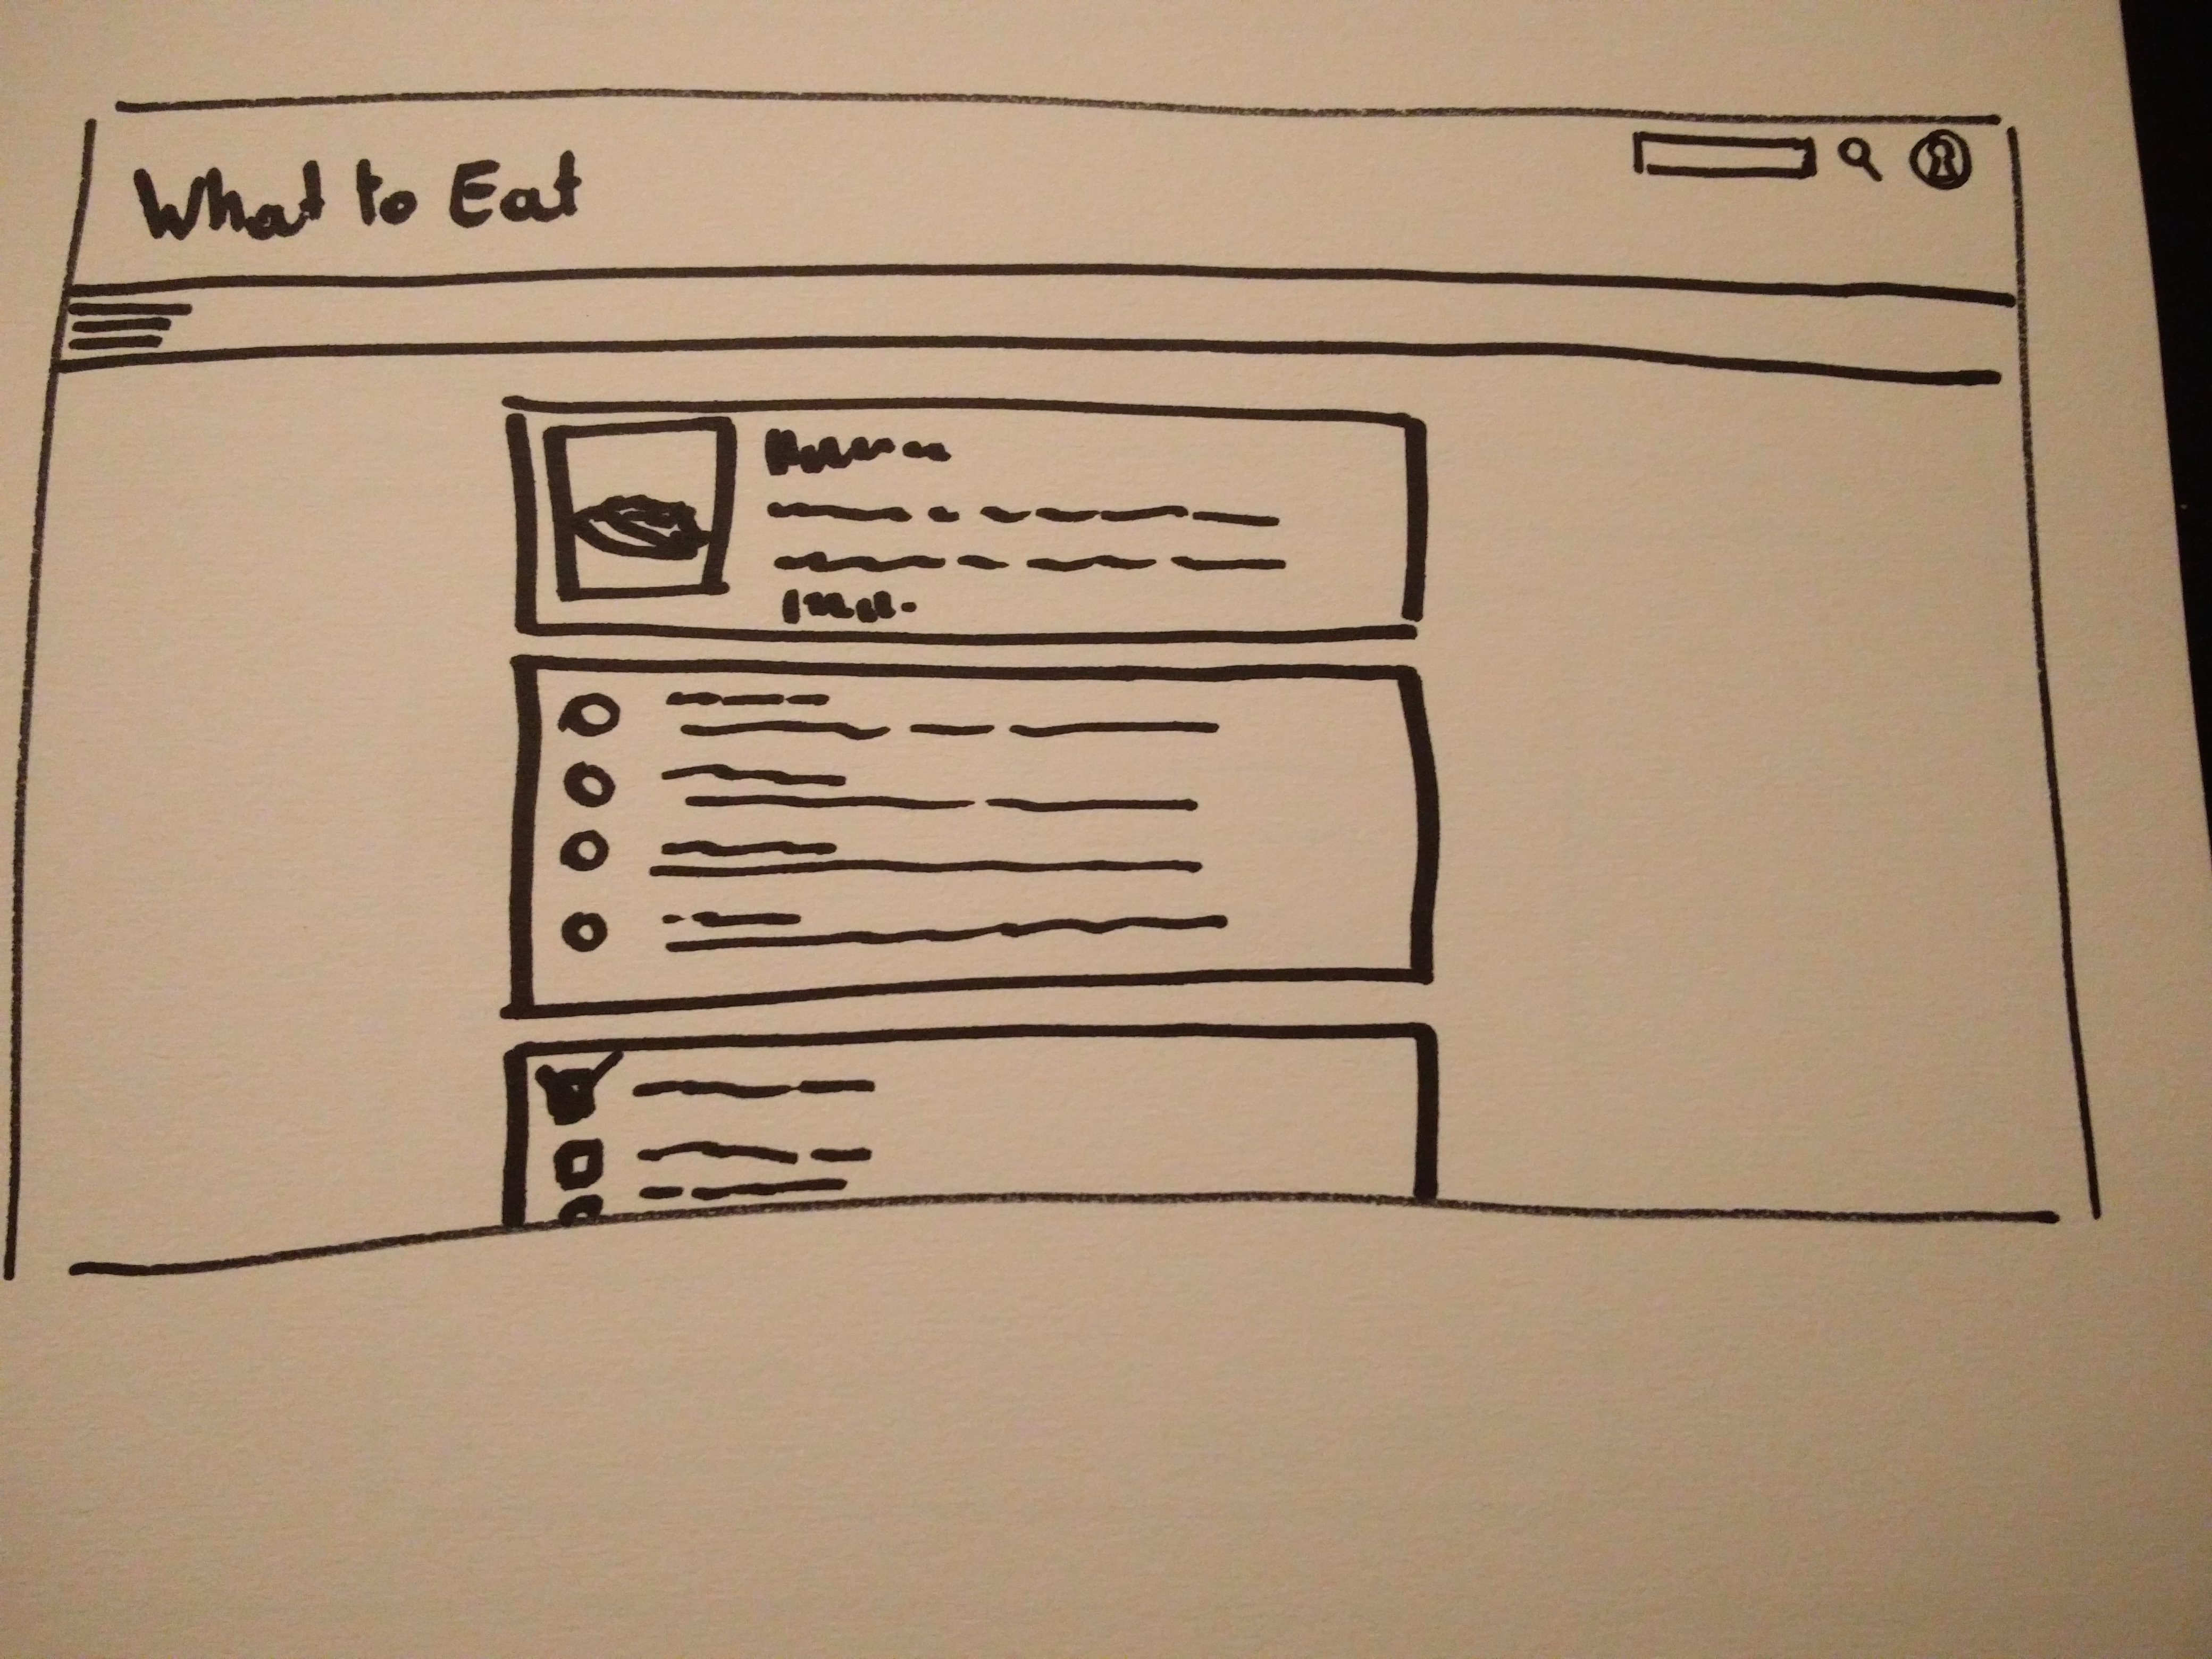 What to Eat